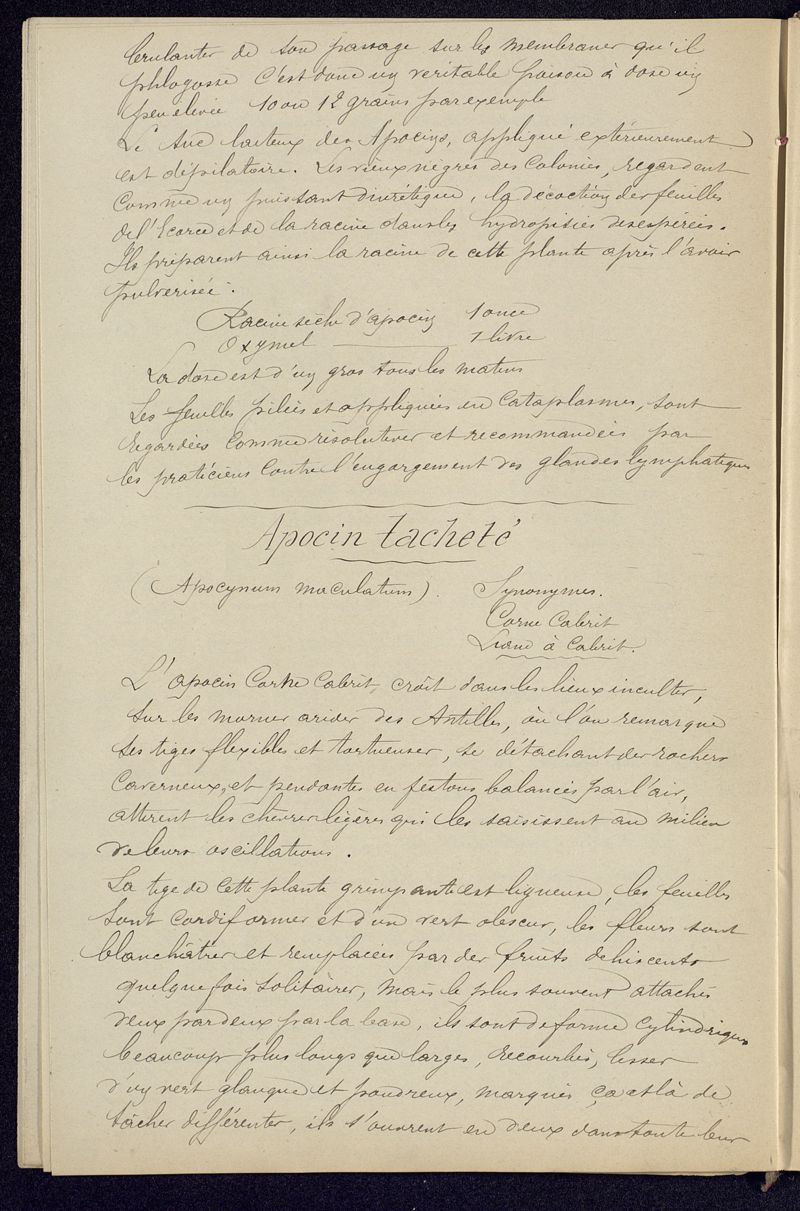 brulantes de son passage sur les membranes qu'il
phlogosse c'est donc un veritable poison à dose un
peu elevée 10 ou 12 grains par exemple
Le suc laiteux des Apocins, appliqué extérieurement
est dépilatoire. Les vieux nègres des Colonies, regardent
comme un puissant diurétique, la décoction des feuilles
de l'Ecorce et de la racine dans les hydropisies desespérées.
Ils préparent ainsi la racine de cette plante après l'avoir
pulverisée.
Racine sèche d'apocin 1 once
Oxymel ——— 1 livre
La dose est d'un gros tous les matins
Les feuilles pilées et appliquées en Cataplasmes, sont
regardées comme résolutives et recommandées par
les praticiens contre l'engorgement des glandes lymphatiques
Apocin tacheté
(Apocynum maculatum). Synonymes.
Corne Cabrit
Liane à Cabrit.
L'apocin Corne Cabrit, croît dans les lieux incultes,
sur les mornes arides des Antilles, où l'on remarque
ses tiges flexibles et tortueuses, se détachant des rochers
Caverneux, et pendantes en festons balancés par l'air,
attirent les chèvres légères qui les saisissent au milieu
de leurs oscillations.
La tige de cette plante grimpante est ligneuse, les feuilles
sont cordiformes et d'un vert obscur, les fleurs sont
blanchâtres et remplacées par des fruits dehiscents
quelquefois solitaires, mais le plus souvent attachés
deux par deux par la base, ils sont de forme cylindrique
beaucoup plus longs que larges, recourbés, lisses
d'un vert glauque et poudreux, marqués ça et là de
tâches différentes, ils s'ouvrent en deux dans toute leur